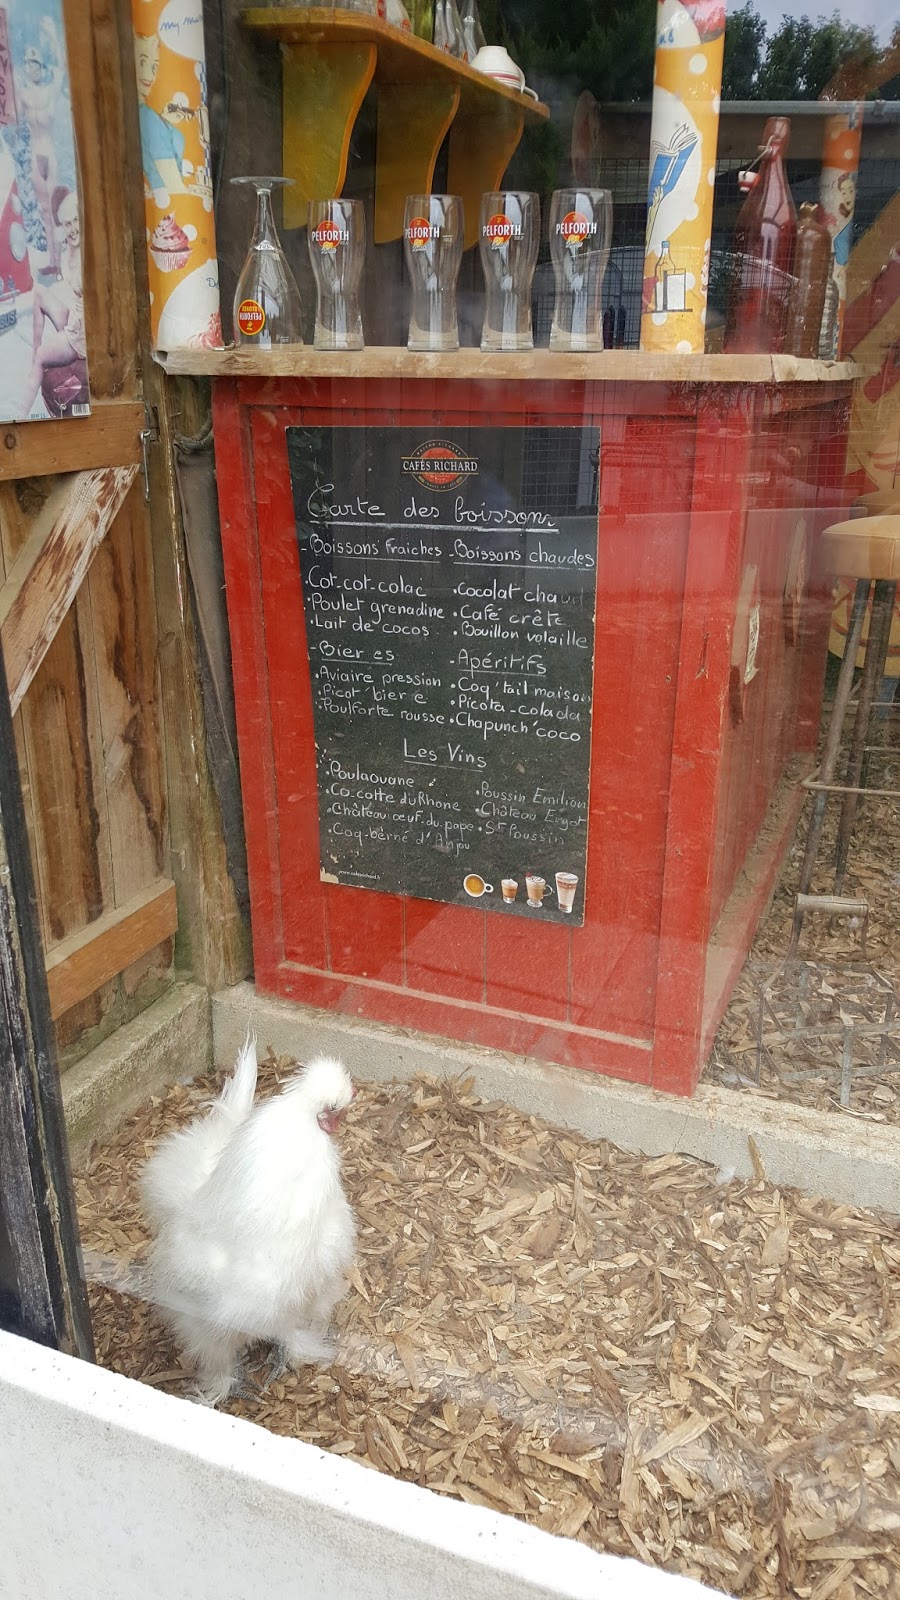 my
PELFORTH
PELFORTH
PELFORTH
PELFORTH
PELFORTH
CAFÉS RICHARD
Carte des boissons
- Boissons fraiches
. Cot-cot-colac
. Poulet grenadine
. Lait de cocos
- Boissons chaudes
. Cocolat chaud
. Café crête
. Bouillon volaille
- Bieres
. Aviaire pression
. Picot'biere
. Poulforte rousse
- Apéritifs
. Coq'tail maison
. Picota-colada
. Chapunch'coco
Les Vins
. Poulaouane
. Co-cotte du Rhone
. Château oeuf-du-pape
. Coq-berné d'Anjou
. Poussin Emilion
. Château Ergot
. St Poussin
www.cafesrichard.fr